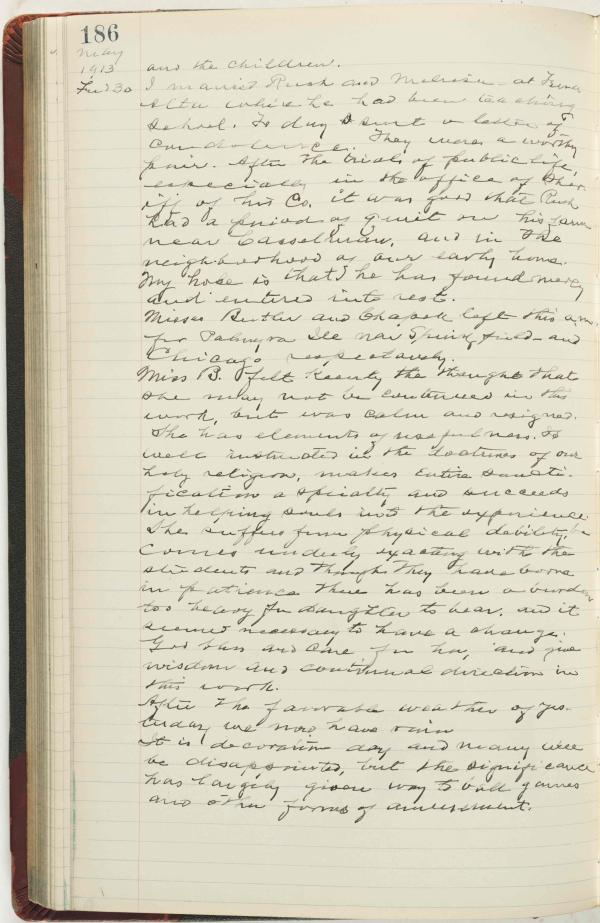 186
May
1913
and the children.
Fri 30 I married Rush and Melissa at Terra
Alta where he had been teaching
school. To day I sent a letter of
condolence. They were a worthy
pair. After the trials of public life,
especially in the office of Sher-
iff of this Co. it was good that Rush
had a period of quiet on his farm
near Casselman, and in the
neighborhood of our early home.
My hope is that he has found mercy
and entered into rest.
Misses Butler and Chapell left this a.m.
for Palmyra Ill near Springfield and
Chicago respectively.
Miss B. felt keenly the thought that
she may not be continued in this
work, but was calm and resigned.
She has elements of usefulness. Is
well instructed in the doctrines of our
holy religion, makes entire sancti-
fication a specialty and succeeds
in helping souls into the experience.
She suffers from physical debility, be
comes unduly exacting with the
students and though they have borne
in patience there has been a burden
too heavy for daughter to bear, and it
seemed necessary to have a change.
God bless and care for her, and give
wisdom and continual direction in
this work.
After the favorable weather of yes-
terday we now have rain
It is decoration day and many will
be disappointed, but the significance
has largely given way to ball games
and other forms of amusement.